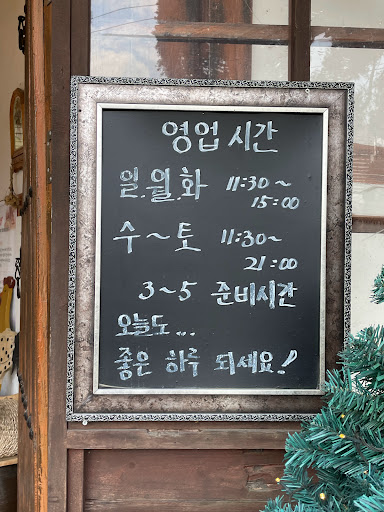 영업 시간
일.월.화 11:30~
15:00
수~토 11:30~
21:00
3~5 준비시간
오늘도...
좋은 하루 되세요!